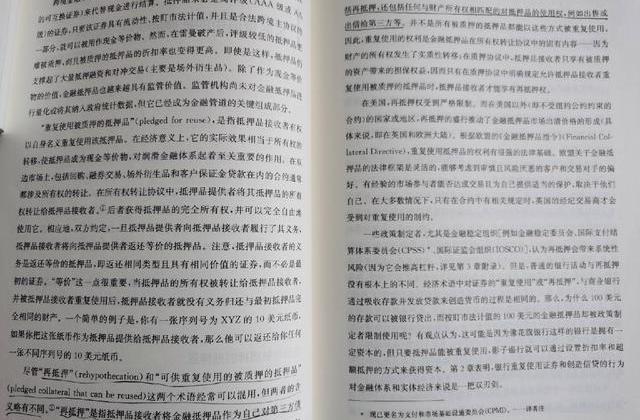 的可互换证券)来代替现金进行结算。
级)的证券,只要该证券具有流动性、按盯市法计值,并且是合法跨境主协议的
一部分,就可以被用作现金等价物。然而,在雷曼破产后,评级较低的抵押品更
难被质押,到且被质押的抵押品的折扣率也变得更高。即使是这样,抵押品仍
支撑起了大量抵押融资和对冲交易(主要是场外衍生品)。除了作为现金等价
物的价值,金融抵押品也越来越具有监管价值。监管机构尚未对金融抵押品进
行量化或将其纳入政府统计数据,但它已经成为金融管道的关键组成部分。
“重复使用被质押的抵押品”(pledged for reuse),是指抵押品接收者有权
以自身名义重复使用该抵押品。在经济意义上,它的实际效果相当于所有权的
转移,使抵押品成为现金等价物,对润滑金融体系起着至关重要的作用。在双
边市场上,包括回购、融券交易、场外衍生品和客户保证金贷款在内的合约通常
都涉及所有权的转让。在所有权转让协议中,抵押品提供者将其抵押品的所有
权转让给抵押品接收者。①后者获得抵押品的完全所有权,并可以完全自由地
使用它。相应地,双方约定,一旦抵押品提供者向抵押品接收者履行了其义务,
抵押品接收者将向抵押品提供者返还等价的抵押品。注意,抵押品接收者的义
务是返还等价的抵押品,即返还相同类型且具有相同价值的证券,而不必是最
初的证券。“等价”这一点很重要,当抵押品的所有权被转让给抵押品接收者,
并被抵押品接收者重复使用后,抵押品接收者就没有义务归还与最初抵押品完
全相同的财产。一个简单的例子是,你有一张序列号为 XYZ 的 10 美元纸币,
如果你把这张纸币作为抵押品提供给抵押品接收者,那么他可以返还给你任何
一张不同序列号的 10 美元纸币。
尽管“再抵押”(rehypothecation)和“可供重复使用的被质押的抵押品”
(pledged collateral that can be reused)这两个术语经常可以混用,但两者的含
义略有不同。②“再抵押”是指抵押品接收者将金融抵押品作为自己对第三方债
括再抵押,还包括任何与财产所有权相匹配的对抵押品的使用权,例如出售或
出借给第三方等。并不是所有被质押的抵押品都能以这些方式被重复使用。
因此,重复使用的权利是金融抵押品在所有权转让协议中的固有内容——因为
财产的所有权发生了实质性转移;在质押协议中,抵押品接收者只享有被质押
的资产带来的担保权益,因而只有在质押协议中明确规定允许抵押品接收者重
复使用被质押的抵押品时,抵押品接收者才能享有再抵押权。
在美国,再抵押权受到严格限制。而在美国以外(即不受纽约合约约束的
合约)的国家或地区,再抵押的盛行推动了金融抵押品市场出清价格的形成(具
体来说,即在英国和欧洲大陆)。根据欧盟的《金融抵押品指令》(Financial Col-
lateral Directive),重复使用抵押品的权利有很强的法律基础。欧盟关于金融抵
押品的法律框架是灵活的,能够考虑到审慎且风险厌恶的客户和交易对手的偏
好。有经验的市场参与者能否达成交易且为自己提供适当的保护,取决于他们
自己。在大多数情况下,只有在合约中有相关规定时,英国的经纪交易商才会
受到对重复使用的制约。
一些政策制定者,尤其是金融稳定组织[例如金融稳定委员会、国际支付结
算体系委员会(CPSS)*、国际证监会组织(IOSCO)],认为再抵押会带来系统性
风险(因为它会推高杠杆,详见第 3 章附录)。但是,普通的银行活动与再抵押
没有根本上的不同。经济术语中对证券的“重复使用”或“再抵押”,与商业银行
通过吸收存款并发放贷款来创造货币的过程是相同的。那么,为什么 100 美元
的存款可以被银行贷出,而按盯市法计值的 100 美元的金融抵押品却被政策制
定者限制使用呢?有观点认为,这可能是因为像花旗银行这样的银行是拥有一
定资本的,但只要抵押品能被重复使用,影子银行就可以通过设置折扣率和超
额抵押的方式来获得资本。第 2 章表明,银行重复使用证券和创造信贷的行为
对金融体系和实体经济来说是一把双刃剑。
* 现已更名为支付和市场基础设施委员会(CPMI)。——译者注